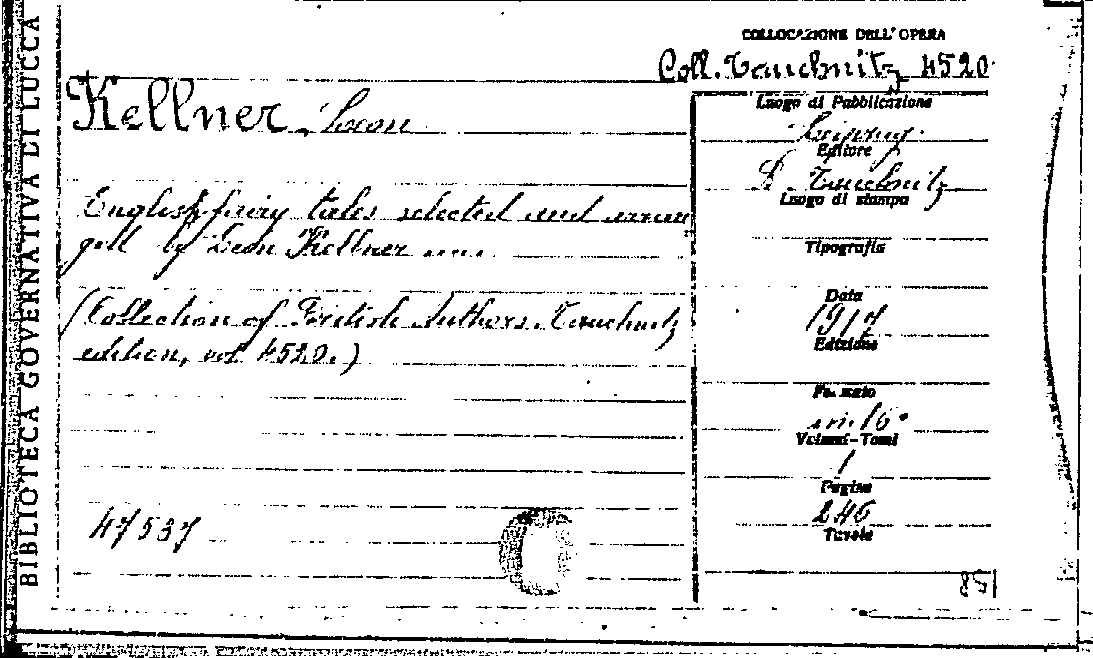 BIBLIOTECA GOVERNATIVA DI LUCCA
COLLOCAZIONE DELL'OPERA
Coll. Tauchnitz 4520
Kellner, Leon
English fairy tales selected and arran
ged by Leon Kellner ....
(Collection of British Authors. Tauchnitz
edition, vol. 4520.)
47537
Luogo di Pubblicazione
Leipzig.
Editore
B. Tauchnitz
Luogo di stampa
Tipografia
Data
1917
Edizione
Formato
in-16°
Volumi-Tomi
1
Pagine
246
Tavole
851